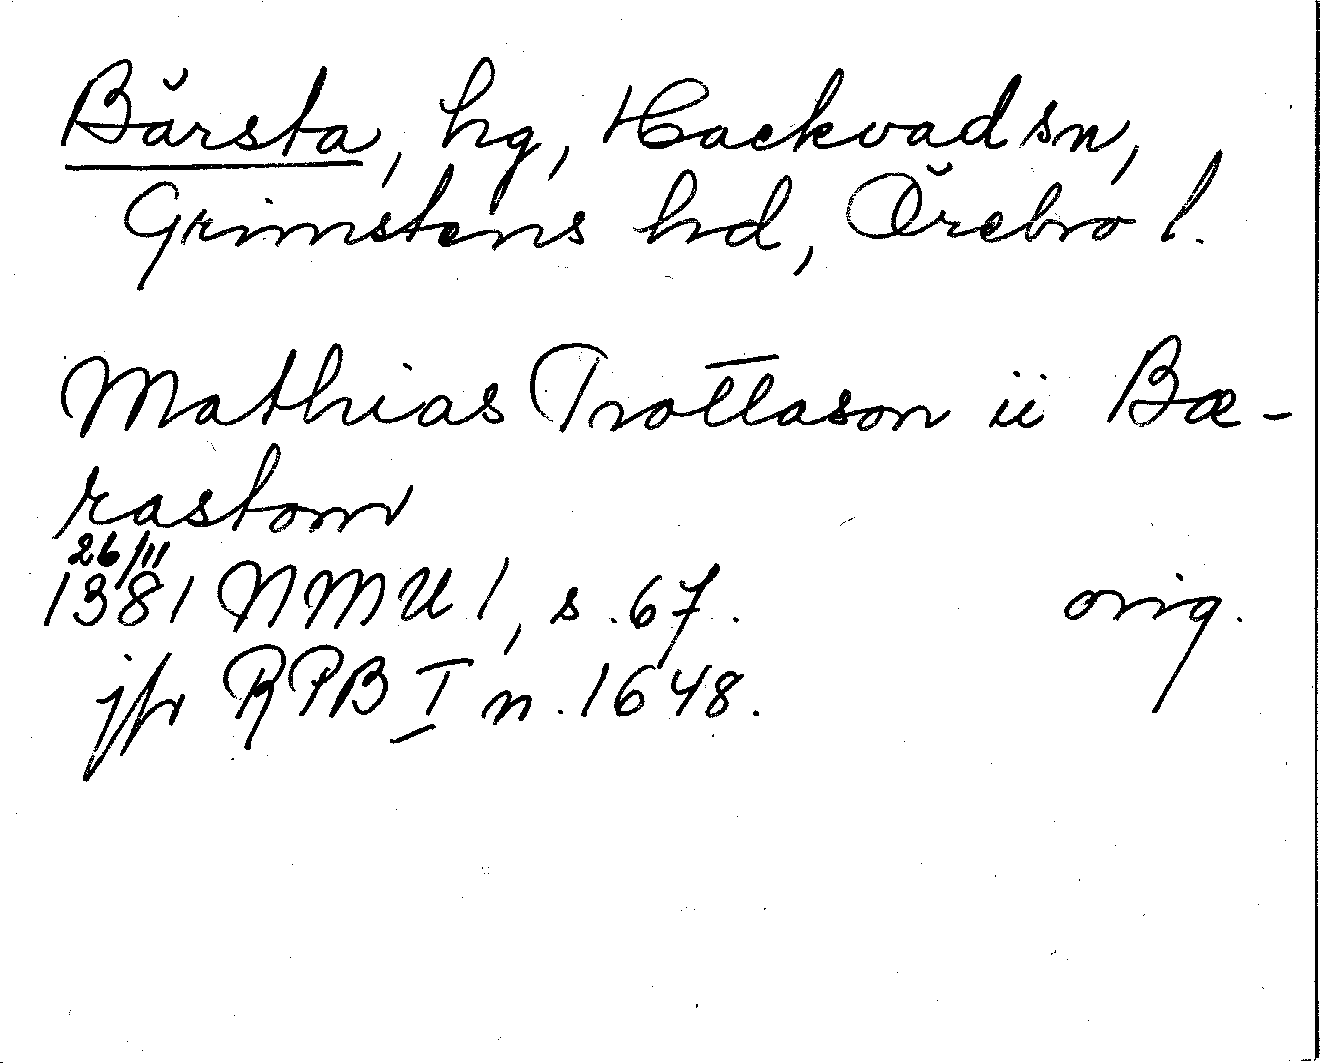 Bärsta, hg, Hackvad sn,
Grimstens hd, Örebro l.
Mathias Trottason ii Bæ-
rastom
26/11
1381 NMU 1, s. 67. orig.
jfr RPB I n. 1648.